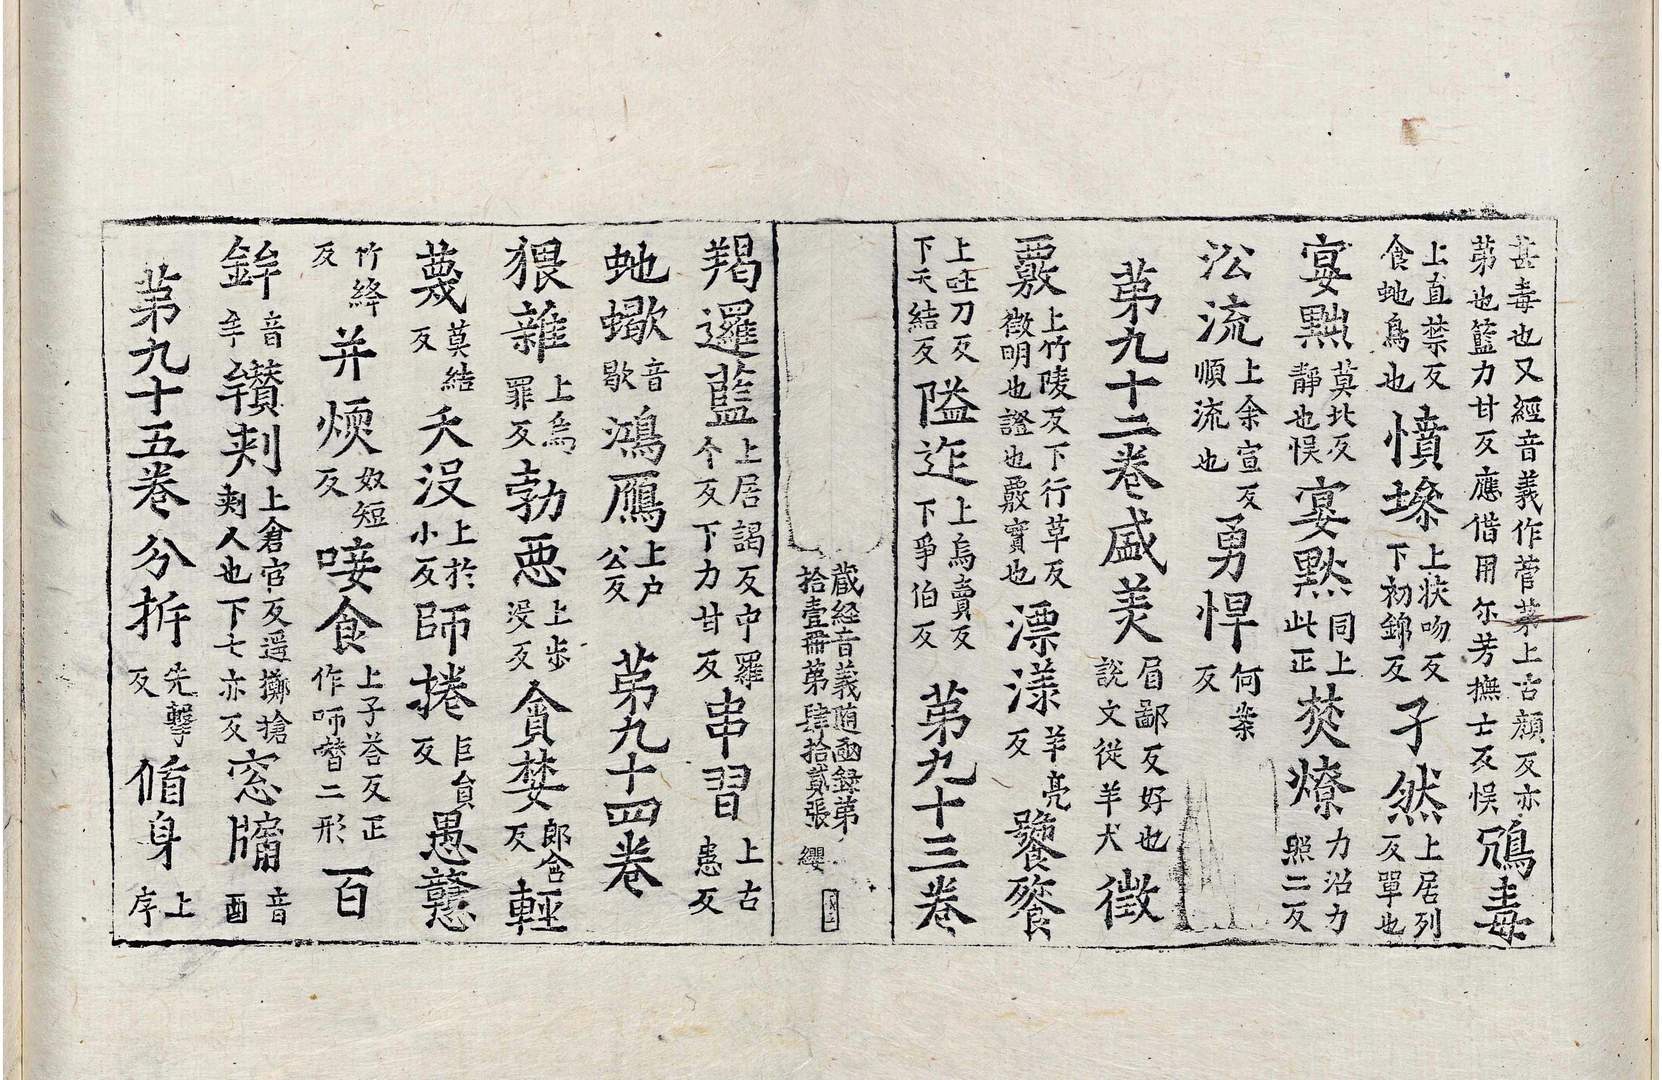 甚毒也又經音義作菅䓘上古顔反亦
苐也籃力甘反應借用尓芳撫士反悞鴆毒
上直禁反食虵鳥也憤墋上狀吻反下初錦反孑然上居列反單也
宴㸃莫北反靜也悞宴黙同上此正焚燎力沼力照二反
㳂流上余宣反順流也勇悍何案反
苐九十二卷盛羙眉鄙反好也說文從羊犬徵
覈上竹陵反下行草反徵明也證也覈實也漂漾羊亮反饕餮
上吐刀反下天結反隘迮上烏賣反下爭伯反苐九十三卷
藏經音義随函録弟拾壹冊第肆拾貳張 纓
羯邏藍上居謁反中羅个反下力甘反串習上古患反
虵蠍音歇鴻鴈上户公反苐九十四卷
猥雜上烏罪反勃惡上步没反貪婪郎含反輕
蔑莫結反夭没上於小反師捲巨員反愚戇
竹絳反并煗奴短反唼食上子荅反正作咂㗱二形百
鉾音牟䂎刾上倉官反遥擲搶刾人也下七亦反窓牖音酉
苐九十五卷分拆先擊反脩身上序